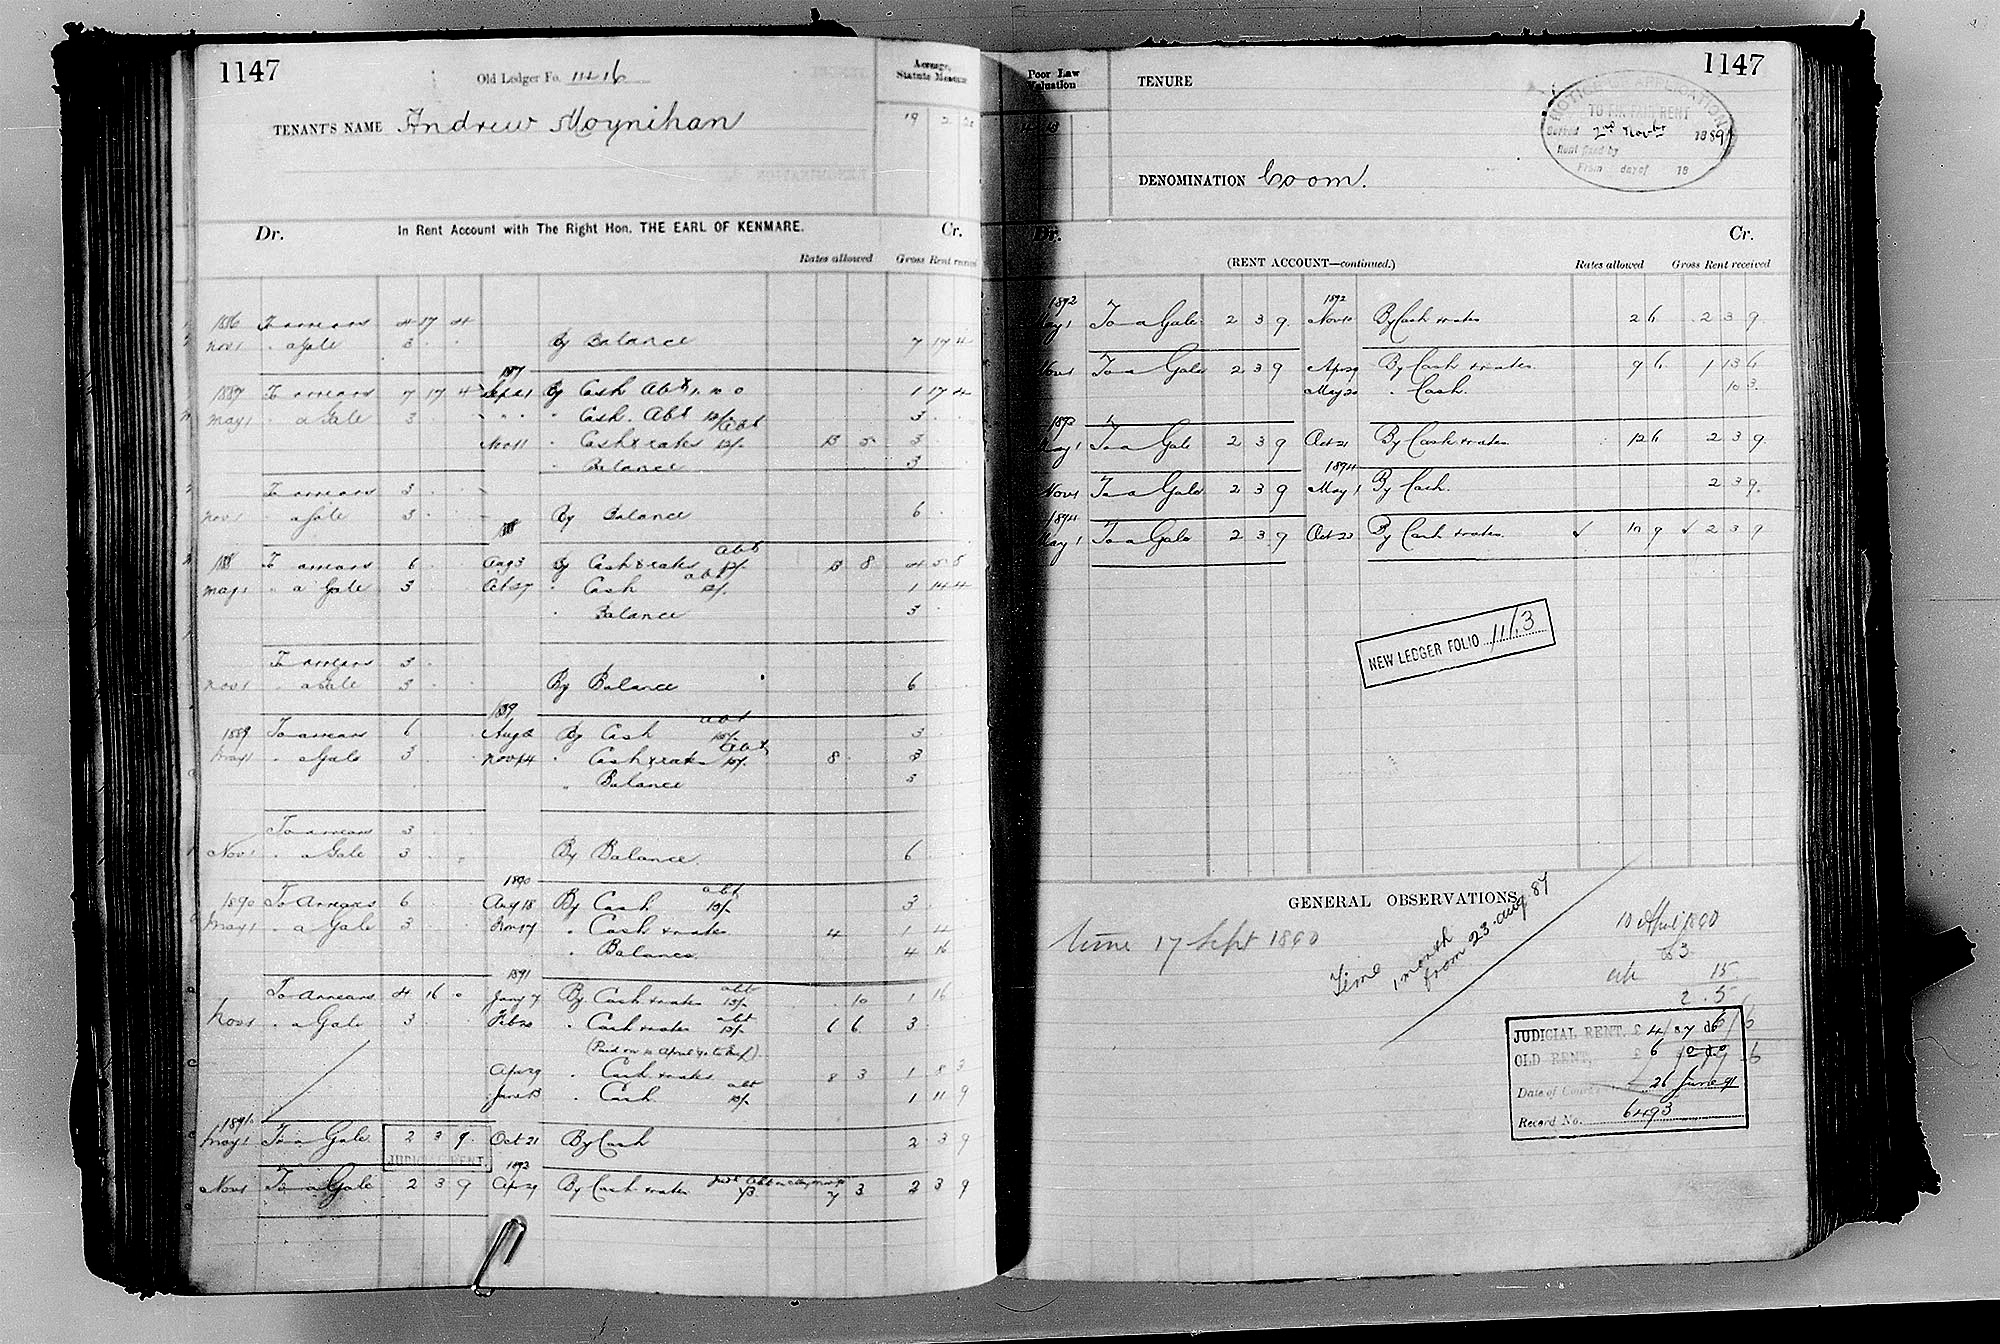 1147
Old Ledger Fo. 1116
Acreage, Statute Measure
TENANT'S NAME Andrew Moynihan
19 2
Dr. In Rent Account with The Right Hon. THE EARL OF KENMARE. Cr.
Rates allowed Gross Rent
1886 To arrears 4 17 4
Nov 1 " a Gale 3 " " By Balance 7 17 4
1887
1887 To arrears 7 17 4 Sept 21 By Cash Abt 1. 10 0 1 17 4
May 1 " a Gale 3 " " " " " Cash. Abt 3
Nov 11 " Cash & rates Abt 3
" Balance 3
To arrears 3
Nov 1 " a Gale 3 By Balance 6
188
188 To arrears 6 Aug 3 By Cash & rates abt 8 4 5 8
May 1 " a Gale 3 Oct 27 " Cash abt 1 14 4
" Balance 3
To arrears 3
Nov 1 " a Gale 3 By Balance 6
1889
1889 To arrears 6 Aug By Cash abt 3
May 1 " a Gale 3 Nov 14 " Cash & rates abt 8 3
" Balance 3
To arrears 3
Nov 1 " a Gale 3 By Balance. 6
1890
1890 To Arrears 6 Aug 18 By Cash abt 3
May 1 " a Gale 3 Nov 17 " Cash & rates 4 1 4
" Balance 4 16
1891
To Arrears 4 16 0 Jany 7 By Cash & rates abt 10 1 16
Nov 1 " a Gale 3 Feb 20 " Cash & rates abt 6 6 3
Apr 29 " Cash & rates 8 3 1 8 3
June 13 " Cash abt 1 11 9
1891
May 1 To a Gale 2 3 9 Oct 21 By Cash 2 3 9
JUDICIAL RENT.
1892
Nov 1 To a Gale 2 3 9 Apr 29 By Cash & rates 7 3 2 3 9
1147
Poor Law Valuation
TENURE
NOTICE OF APPLICATION
TO FIX FAIR RENT
Served 2nd Novbr 1889
Rent fixed by
From day of 18
DENOMINATION Coom.
Dr. Cr.
(RENT ACCOUNT—continued.) Rates allowed Gross Rent received
1892 1892
May 1 To a Gale 2 3 9 Nov By Cash & rates 2 6 2 3 9
Nov 1 To a Gale 2 3 9 Apr 29 By Cash & rates 9 6 1 13 6
May 20 " Cash. 10 3
1893
May 1 To a Gale 2 3 9 Oct 21 By Cash & rates 12 6 2 3 9
1894
Nov 1 To a Gale 2 3 9 May 1 By Cash. 2 3 9.
1894
May 1 To a Gale 2 3 9 Oct 23 By Cash & rates 10 9 2 3 9
NEW LEDGER FOLIO 1113
GENERAL OBSERVATIONS
time 17 Sept 1890
Time 1 month from 23. Aug. 87
10 April 1890
£3
abt 15
2. 5
JUDICIAL RENT, £ 4/87 6/6
OLD RENT, £ 6
Date of 26 June 91
Record No. 6493